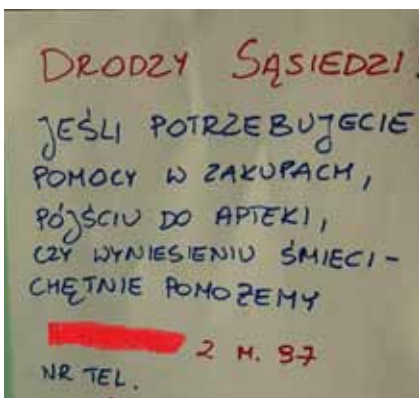 DRODZY SĄSIEDZI.
JEŚLI POTRZEBUJECIE
POMOCY W ZAKUPACH,
PÓJŚCIU DO APTEKI,
CZY WYNIESIENIU ŚMIECI -
CHĘTNIE POMOŻEMY
2 M. 97
NR TEL.